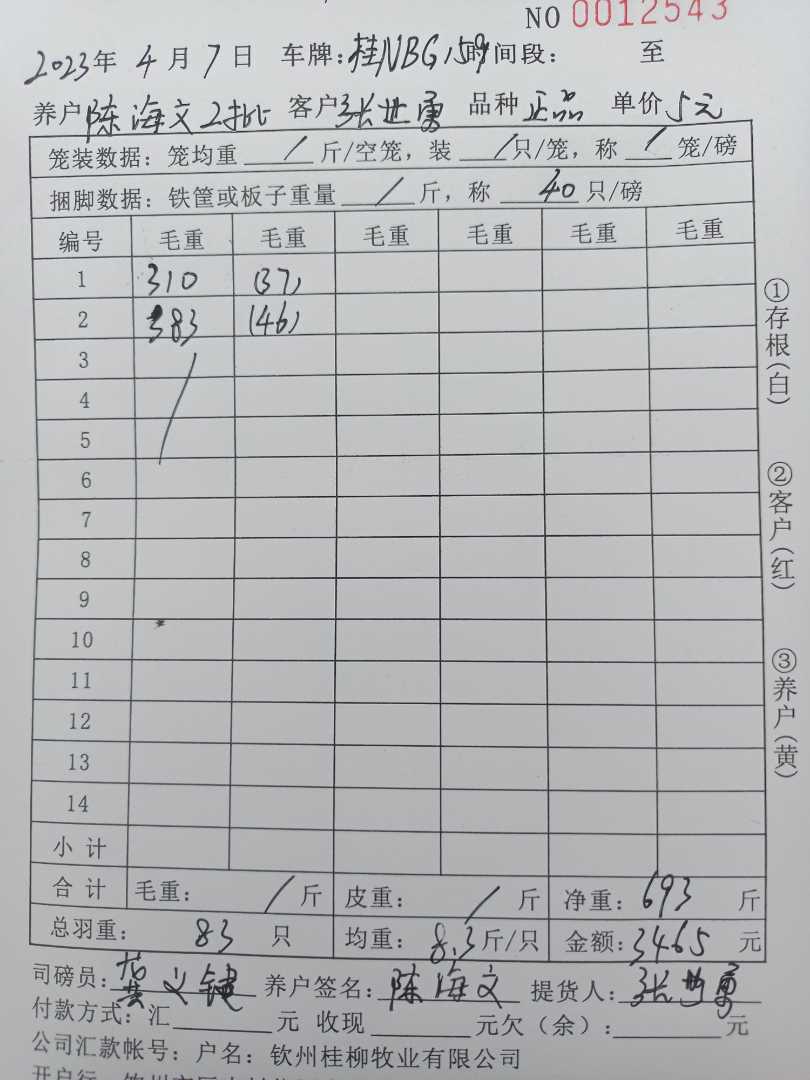 NO 0012543
2023年 4月 7日 车牌:桂NBG159 时间段: 至
养户 陈海文2批 客户 张世勇 品种 正品 单价 5元
笼装数据:笼均重 / 斤/空笼,装 / 只/笼,称 / 笼/磅
捆脚数据:铁筐或板子重量 / 斤,称 40 只/磅
编号 毛重 毛重 毛重 毛重 毛重 毛重
1 310 (37)
2 383 (46)
3 /
4
5
6
7
8
9
10
11
12
13
14
小计
合计 毛重: / 斤 皮重: / 斤 净重: 693 斤
总羽重: 83 只 均重: 8.3 斤/只 金额: 3465 元
司磅员: 黄义键 养户签名: 陈海文 提货人: 张世勇
付款方式:汇 元 收现 元欠(余): 元
公司汇款帐号:户名:钦州桂柳牧业有限公司
开户行
①存根(白)
②客户(红)
③养户(黄)